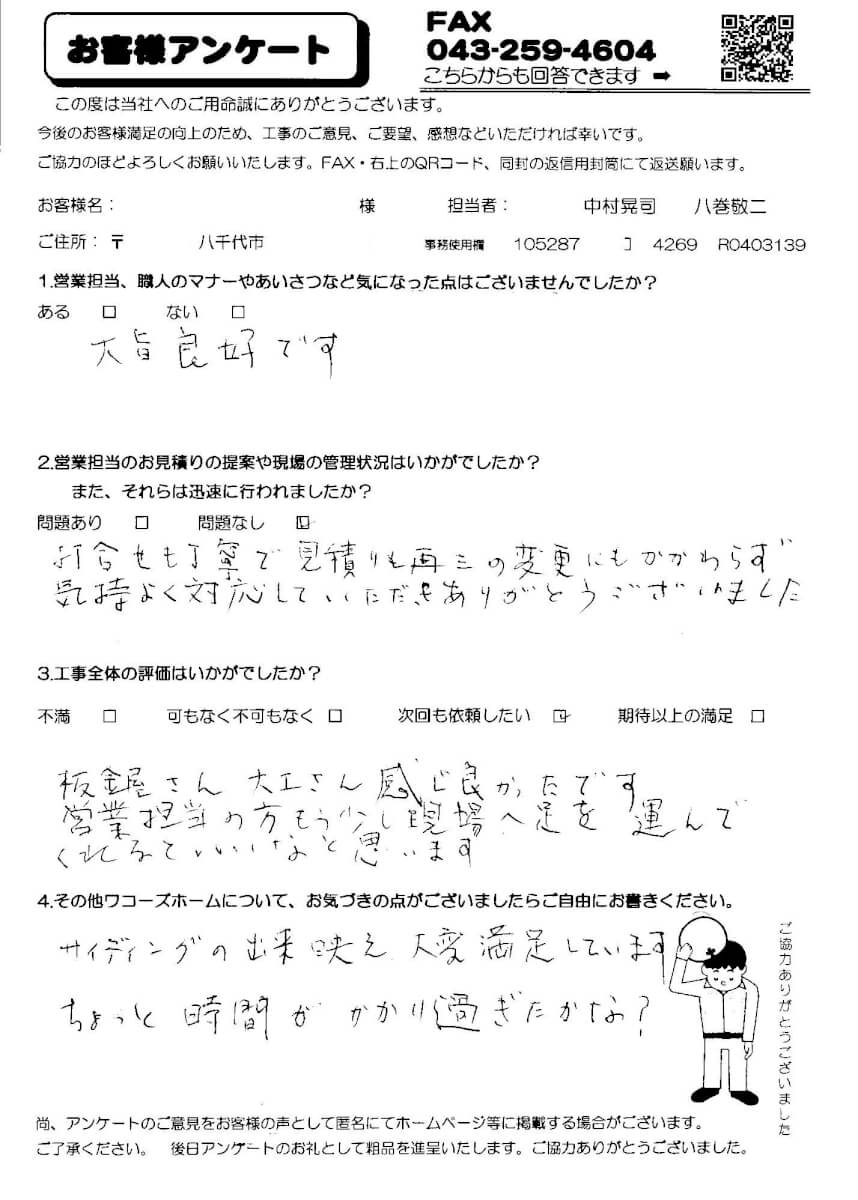 お客様アンケート
FAX
043-259-4604
こちらからも回答できます ➡
この度は当社へのご用命誠にありがとうございます。
今後のお客様満足の向上のため、工事のご意見、ご要望、感想などいただければ幸いです。
ご協力のほどよろしくお願いいたします。FAX・右上のQRコード、同封の返信用封筒にて返送願います。
お客様名： 様 担当者： 中村晃司 八巻敬二
ご住所：〒 八千代市 事務使用欄 105287 コ 4269 R0403139
1.営業担当、職人のマナーやあいさつなど気になった点はございませんでしたか？
ある □ ない □
大旨良好です
2.営業担当のお見積りの提案や現場の管理状況はいかがでしたか？
また、それらは迅速に行われましたか？
問題あり □ 問題なし ☑
打合せも丁寧で見積りも再三の変更にもかかわらず
気持よく対応していただきありがとうございました
3.工事全体の評価はいかがでしたか？
不満 □ 可もなく不可もなく □ 次回も依頼したい ☑ 期待以上の満足 □
板金屋さん 大工さん 感じ良かったです
営業担当の方もう少し現場へ足を運んで
くれるといいなと思います
4.その他ワコーズホームについて、お気づきの点がございましたらご自由にお書きください。
サイディングの出来映え、大変満足しています
ちょっと時間がかかり過ぎたかな？
ご協力ありがとうございました
尚、アンケートのご意見をお客様の声として匿名にてホームページ等に掲載する場合がございます。
ご了承ください。 後日アンケートのお礼として粗品を進呈いたします。ご協力ありがとうございました。